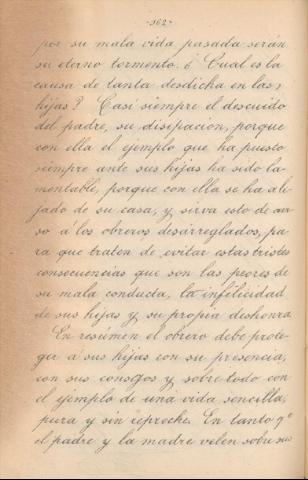 -362-
por su mala vida pasada serán
su eterno tormento. ¿Cual es la
causa de tanta desdicha en las
hijas? Casi siempre el descuido
del padre, su disipacion, porque
con ella el ejemplo que ha puesto
siempre ante sus hijas ha sido la-
montable, porque con ella se ha ale-
jado de su casa, y sirva esto de avi-
so á los obreros desarreglados, pa-
ra que traten de evitar estas tristes
consecuencias que son las peores de
su mala conducta, la infelicidad
de sus hijas y su propia deshonra.
En resúmen el obrero debe prote-
ger á sus hijas con su presencia,
con sus consejos y sobre todo con
el ejemplo de una vida sencilla,
pura y sin reproche. En tanto qe
el padre y la madre velen sobre sus